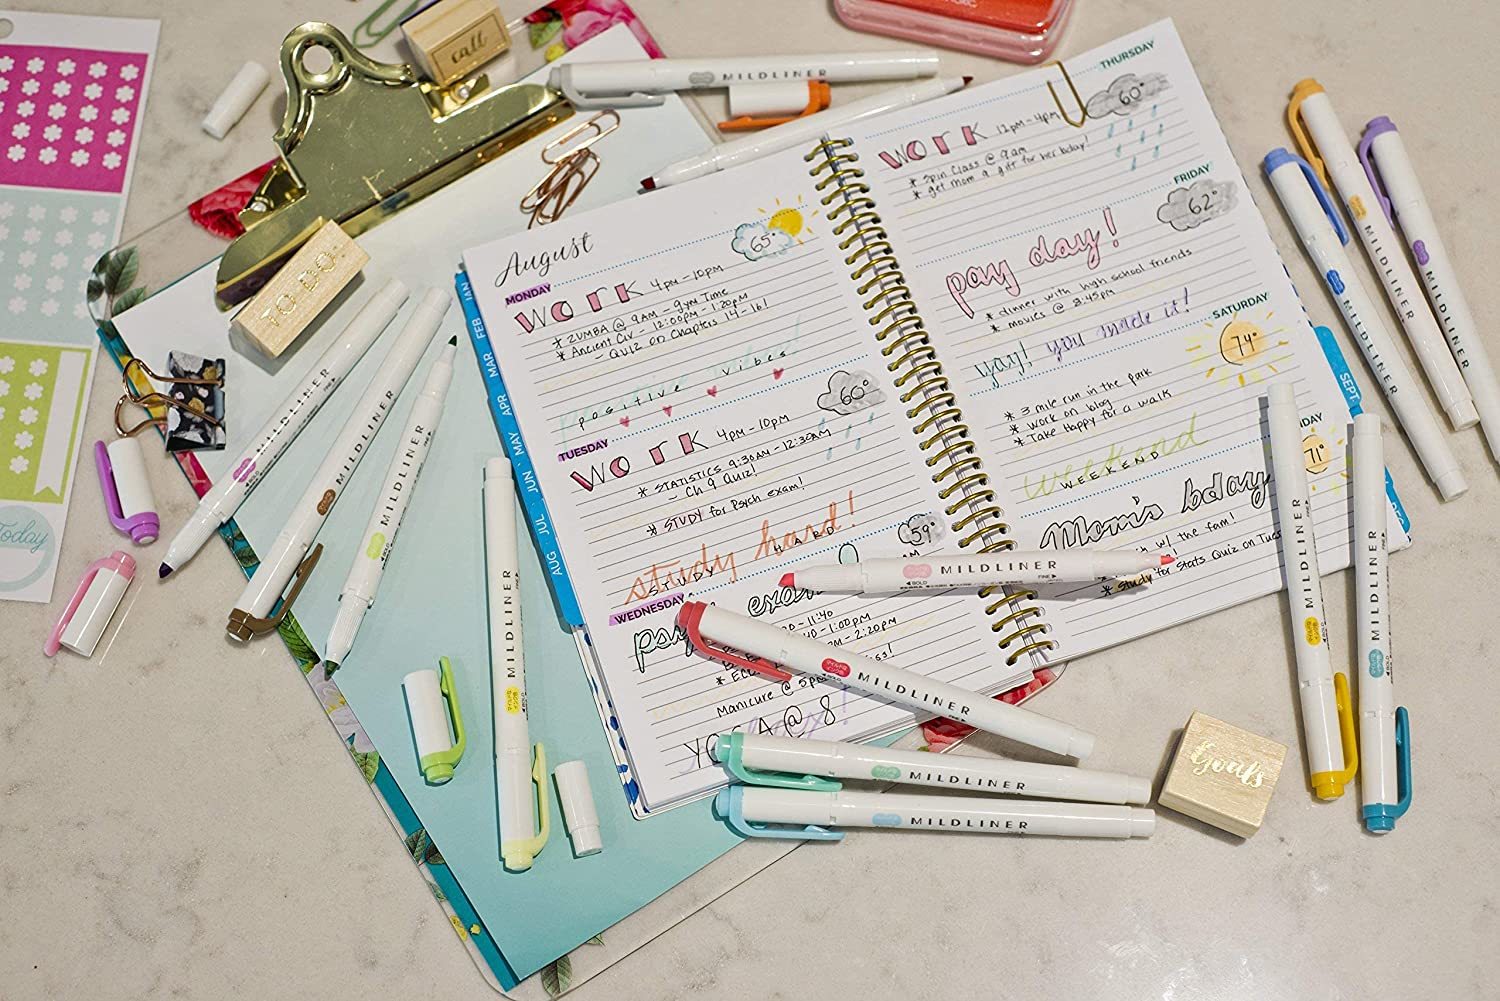 August
MONDAY
65°
WORK 4pm - 10pm
* ZUMBA @ 9AM - gym Time
* Ancient Civ - 12:00PM - 1:20pm
- Quiz on Chapters 14-16!
positive vibes
TUESDAY
60°
WORK 4pm - 10pm
* STATISTICS 9:30AM - 12:30AM
- Ch 9 Quiz!
* STUDY for Psych exam!
study hard!
STUDY HARD
WEDNESDAY
59°
11:40
1:00PM
2:20pm
Manicure @ 5p
YOGA @ 8
THURSDAY
60°
WORK 12pm - 4pm
* Spin Class @ 9am
* get mom a gift for her bday!
FRIDAY
62°
pay day!
* dinner with high school friends
* movies @ 8:45pm
yay! you made it!
SATURDAY
74°
* 3 mile run in the park
* Work on blog
* Take Happy for a walk
weekend
WEEKEND
71°
Mom's bday
w/ the fam!
* Study for Stats Quiz on Tues
JAN
FEB
MAR
APR
MAY
JUN
JUL
AUG
SEPT
DEC
call
TO DO
Goals
Today
MILDLINER
MILDLINER
MILDLINER
MILDLINER
MILDLINER
MILDLINER
BOLD
FINE
MILDLINER
MILDLINER
MILDLINER
MILDLINER
MILDLINER
MILDLINER
MILDLINER
MILDLINER